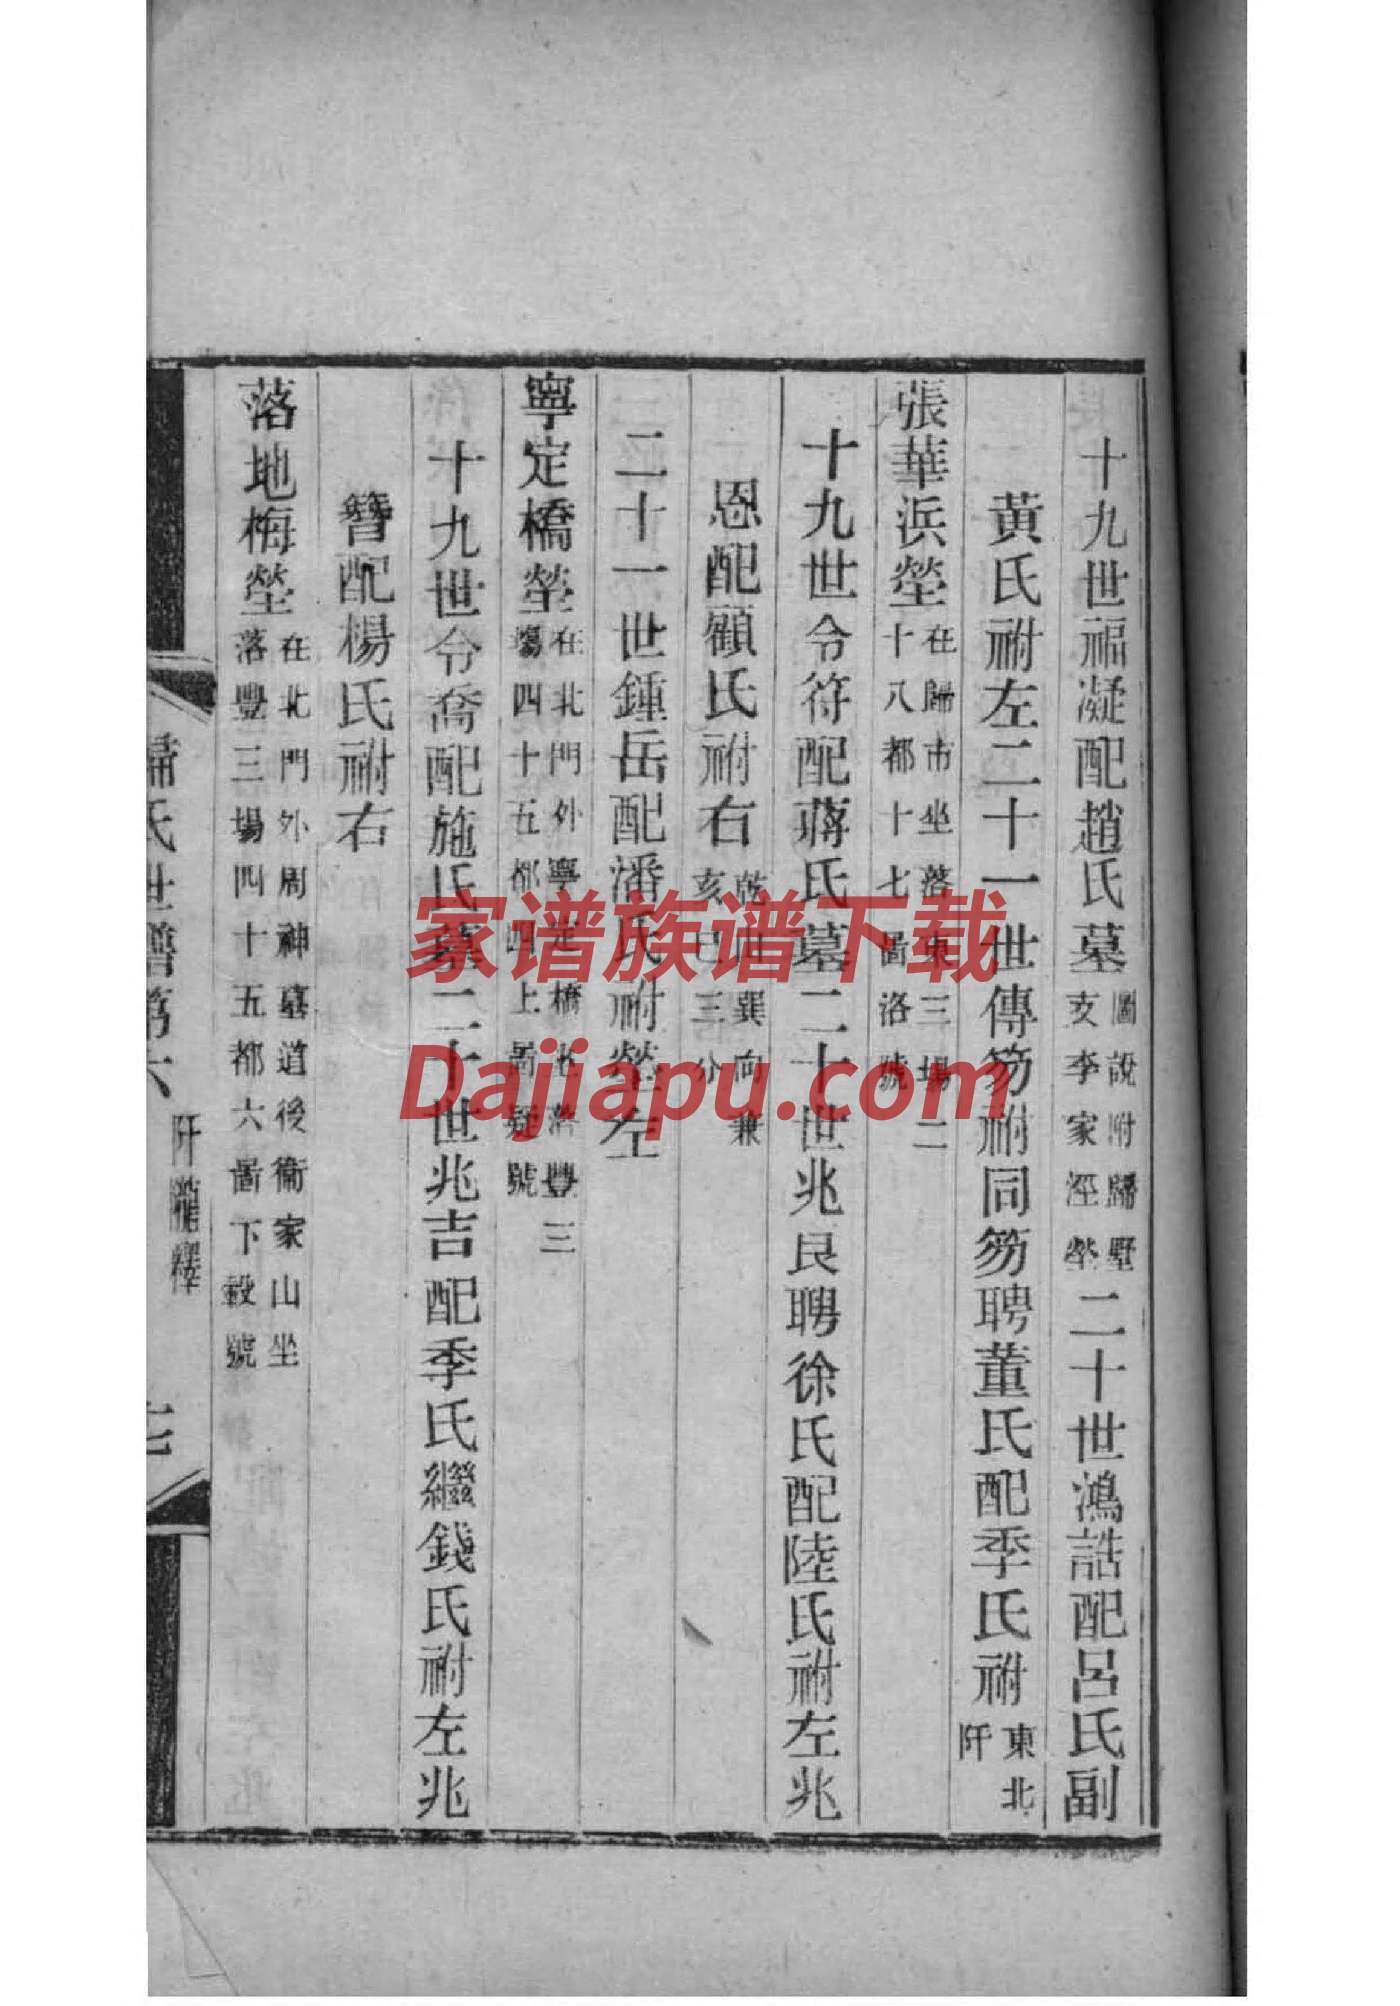 十九世福凝配趙氏墓圖說附歸墅亥李家涇塋二十世鴻誥配呂氏副
黃氏祔左二十一世傳笏祔同笏聘董氏配季氏祔東北阡
張華浜塋在歸市坐落東三場二十八都十七啚洛號
十九世令符配蔣氏墓二十世兆良聘徐氏配陸氏祔左兆
恩配顧氏祔右乾山巽向兼亥巳三分
二十一世鍾岳配潘氏祔塋左
寧定橋塋在北門外寧定橋坐落豐三場四十五都四上啚號
十九世令喬配施氏墓二十世兆吉配季氏繼錢氏祔左兆
簪配楊氏祔右
落地梅塋在北門外周神墓道後衞家山坐落豐三場四十五都六啚下穀號
氏世譜第六
阡隴釋
七
家谱族谱下载
Dajiapu.com